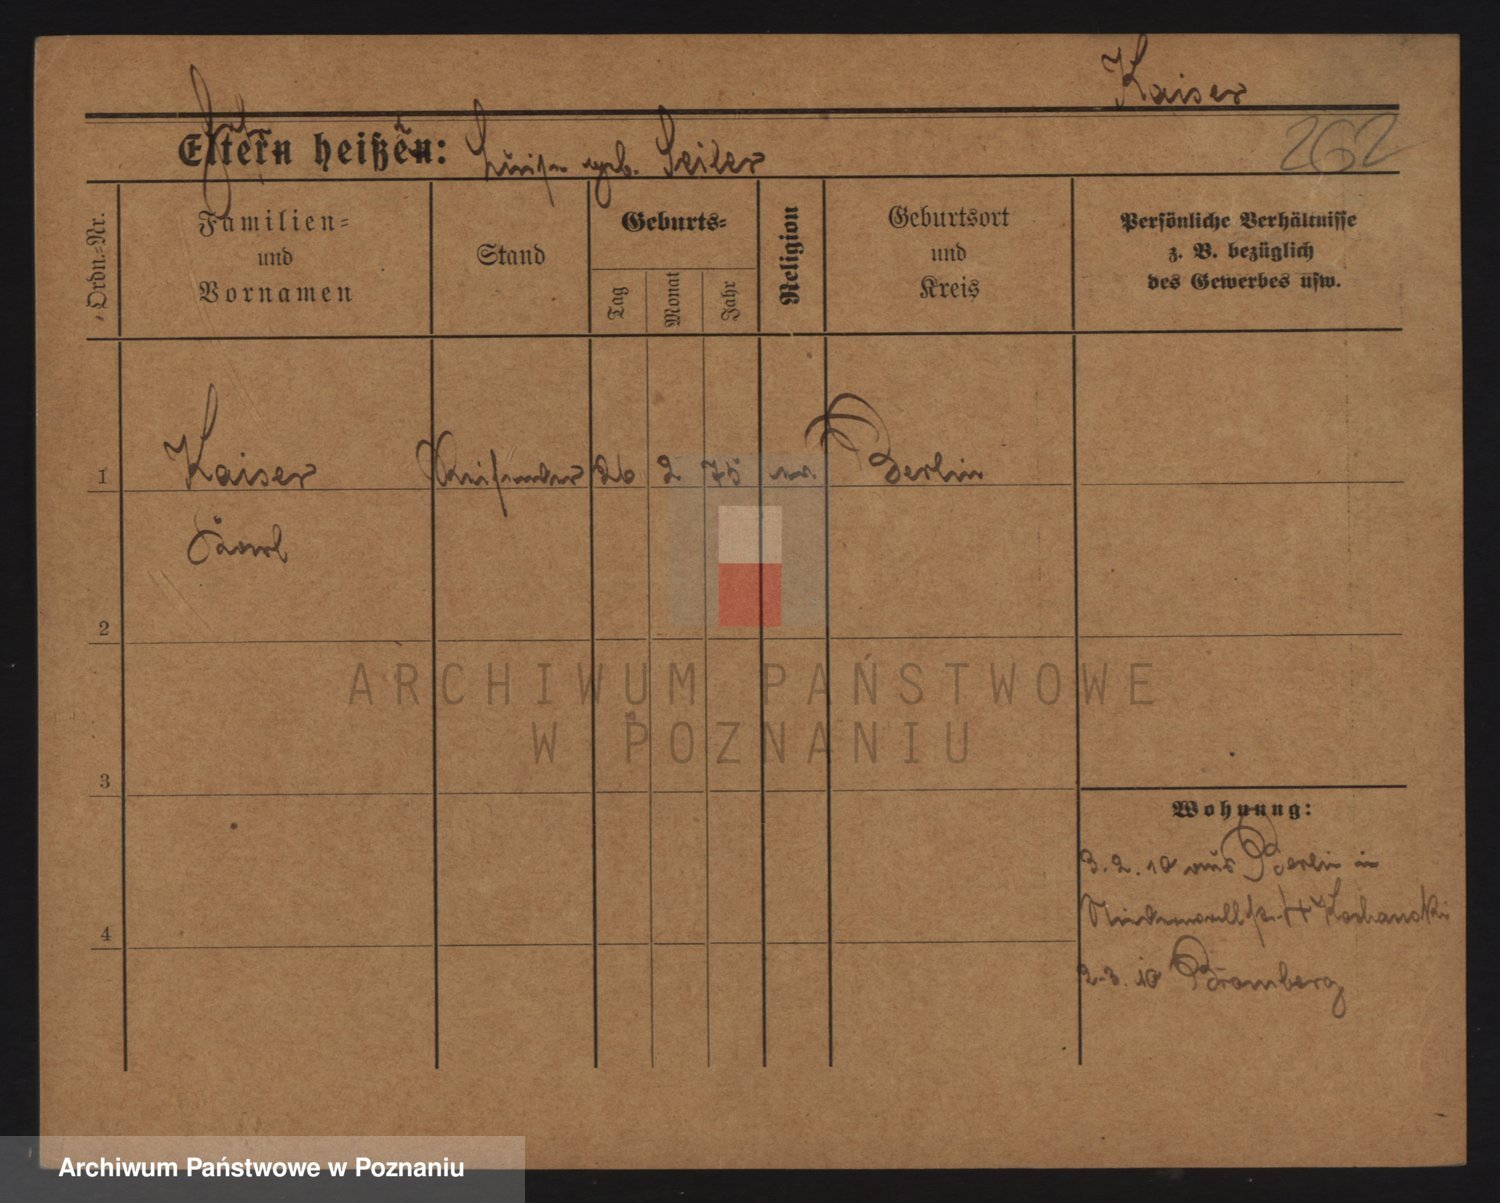 Kaiser
262
Eltern heißen: Luise geb. Seiler
Ordn.-Nr.
Familien-
und
Vornamen
Stand
Geburts-
Tag
Monat
Jahr
Religion
Geburtsort
und
Kreis
Persönliche Verhältnisse
z. B. bezüglich
des Gewerbes usw.
1
Kaiser
26 2 75
Berlin
2
ARCHIWUM PAŃSTWOWE
W POZNANIU
3
Wohnung:
3.2.10 aus Berlin in
4
2.3.10 Bromberg
Archiwum Państwowe w Poznaniu